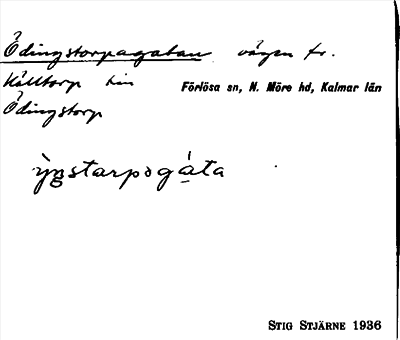 Ödingstorpagatan vägen fr.
Källtorp till Förlösa sn, N. Möre hd, Kalmar län
Ödingstorp
ỳŋstarpogáta
STIG STJÄRNE 1936